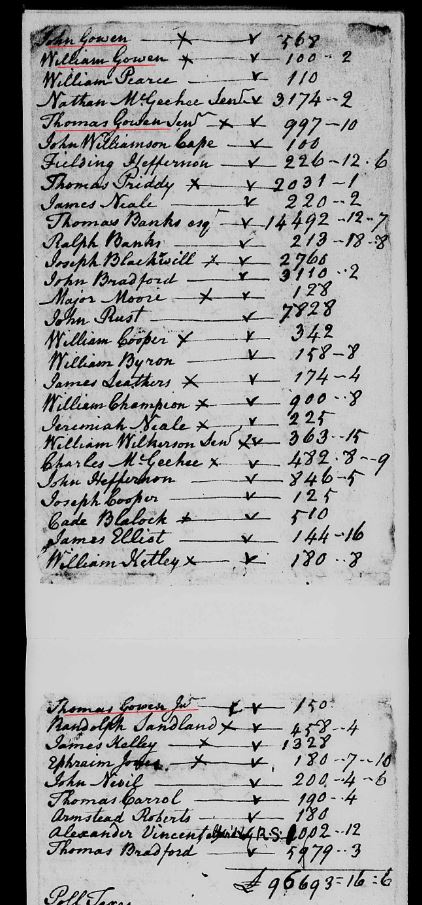 John Gowen — x — v — 568
William Gowen x — v — 100 - - 2
William Pearce — v — 110
Nathan McGeehee Senr v 3174 - 2
Thomas Gowen Senr x v 997 - 10
John Williamson Cape — v — 100
Fielding Heffernon — v — 226 - 12 - 6
Thomas Priddy x — v — 2031 - 1
James Neale — v — 220 - 2
Thomas Banks esqr v 14492 - 12 - 7
Ralph Banks — v — 213 - 18 - 8
Joseph Blackwill x — v — 2760
John Bradford — v — 3110 - - 2
Major Moore — x — v — 128
John Rust — v — 7828
William Cooper x — v — 342
William Byron — v — 158 - 8
James Leathers x — v — 174 - 4
William Champion x — v — 900 - - 8
Jeremiah Neale x — v — 225
William Wilkerson Senr x v 363 - - 15
Charles McGeehee x — v — 482 - 8 - - 9
John Heffernon — v — 846 - 5
Joseph Cooper — v — 125
Cade Blalock x — v — 510
James Elliot — v — 144 - 16
William Ketley x — v — 180 - - 8
Thomas Gowen Jur v v 150
Randolph Sandland x v 458 - - 4
James Kelley — x — v — 1328
Ephraim — x — v — 180 - 7 - 10
John Nevil — v — 200 - 4 - 6
Thomas Carrol — v — 190 - - 4
Armstead Roberts — v — 180
Alexander Vincent RS 1002 - 12
Thomas Bradford — v — 5979 - - 3
£ 96693 = 16 = 6
Poll Taxes